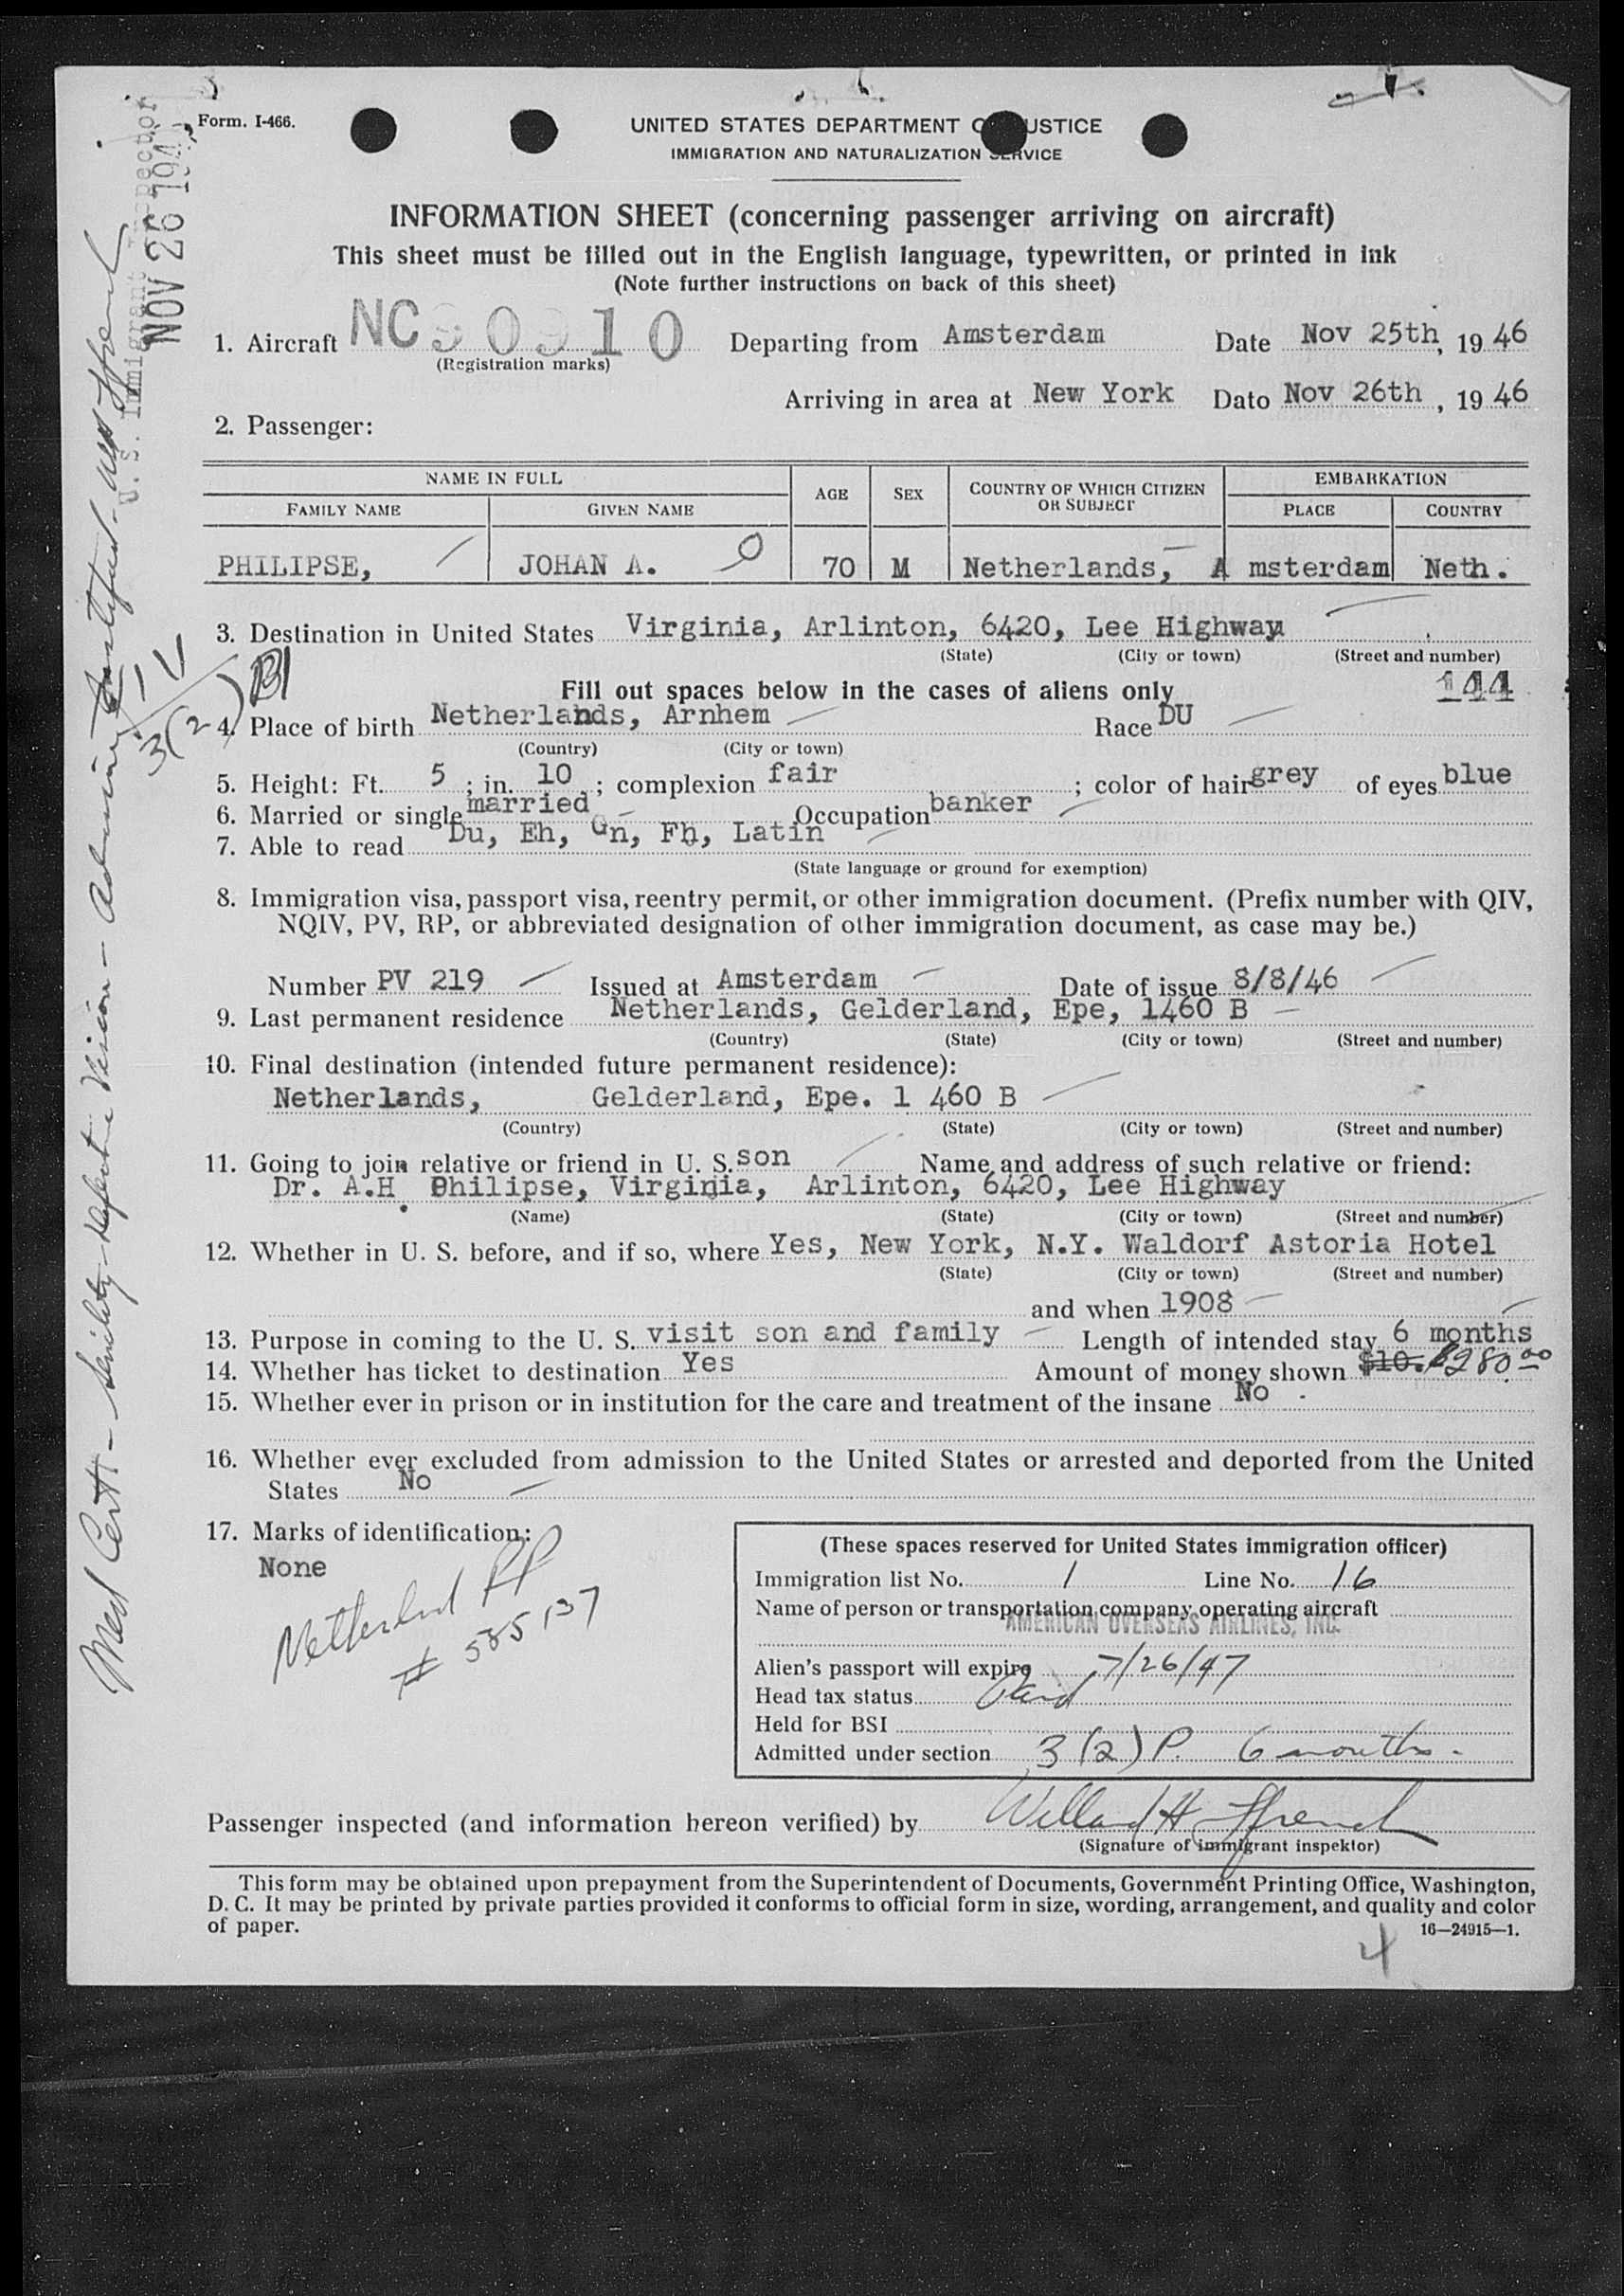 Form. I-466.
UNITED STATES DEPARTMENT O JUSTICE
IMMIGRATION AND NATURALIZATION SERVICE
INFORMATION SHEET (concerning passenger arriving on aircraft)
This sheet must be filled out in the English language, typewritten, or printed in ink
(Note further instructions on back of this sheet)
1. Aircraft NC 90910 Departing from Amsterdam Date Nov 25th, 19 46
(Registration marks)
Arriving in area at New York Date Nov 26th, 19 46
2. Passenger:
NAME IN FULL AGE SEX COUNTRY OF WHICH CITIZEN OR SUBJECT EMBARKATION
FAMILY NAME GIVEN NAME PLACE COUNTRY
PHILIPSE, JOHAN A. 70 M Netherlands, A msterdam Neth.
3. Destination in United States Virginia, Arlinton, 6420, Lee Highway
(State) (City or town) (Street and number)
Fill out spaces below in the cases of aliens only 144
4. Place of birth Netherlands, Arnhem Race DU
(Country) (City or town)
5. Height: Ft. 5 ; in. 10 ; complexion fair ; color of hair grey of eyes blue
6. Married or single married Occupation banker
7. Able to read Du, Eh, Gn, Fh, Latin
(State language or ground for exemption)
8. Immigration visa, passport visa, reentry permit, or other immigration document. (Prefix number with QIV,
NQIV, PV, RP, or abbreviated designation of other immigration document, as case may be.)
Number PV 219 Issued at Amsterdam Date of issue 8/8/46
9. Last permanent residence Netherlands, Gelderland, Epe, 1460 B
(Country) (State) (City or town) (Street and number)
10. Final destination (intended future permanent residence):
Netherlands, Gelderland, Epe. 1 460 B
(Country) (State) (City or town) (Street and number)
11. Going to join relative or friend in U. S. son Name and address of such relative or friend:
Dr. A.H. Philipse, Virginia, Arlinton, 6420, Lee Highway
(Name) (State) (City or town) (Street and number)
12. Whether in U. S. before, and if so, where Yes, New York, N.Y. Waldorf Astoria Hotel
(State) (City or town) (Street and number)
and when 1908
13. Purpose in coming to the U. S. visit son and family Length of intended stay 6 months
14. Whether has ticket to destination Yes Amount of money shown $10. $280.00
15. Whether ever in prison or in institution for the care and treatment of the insane No
16. Whether ever excluded from admission to the United States or arrested and deported from the United
States No
17. Marks of identification:
None
Netherland PP
# 585137
(These spaces reserved for United States immigration officer)
Immigration list No. 1 Line No. 16
Name of person or transportation company operating aircraft
AMERICAN OVERSEAS AIRLINES, INC.
Alien's passport will expire 7/26/47
Head tax status Paid
Held for BSI
Admitted under section 3 (2) P. 6 months
Passenger inspected (and information hereon verified) by Willard H French
(Signature of immigrant inspektor)
This form may be obtained upon prepayment from the Superintendent of Documents, Government Printing Office, Washington,
D. C. It may be printed by private parties provided it conforms to official form in size, wording, arrangement, and quality and color
of paper. 16—24915—1.
4
U. S. Immigrant Inspector
NOV 26 194
Med Cert - Senility - Defective Vision -
3(2) B1